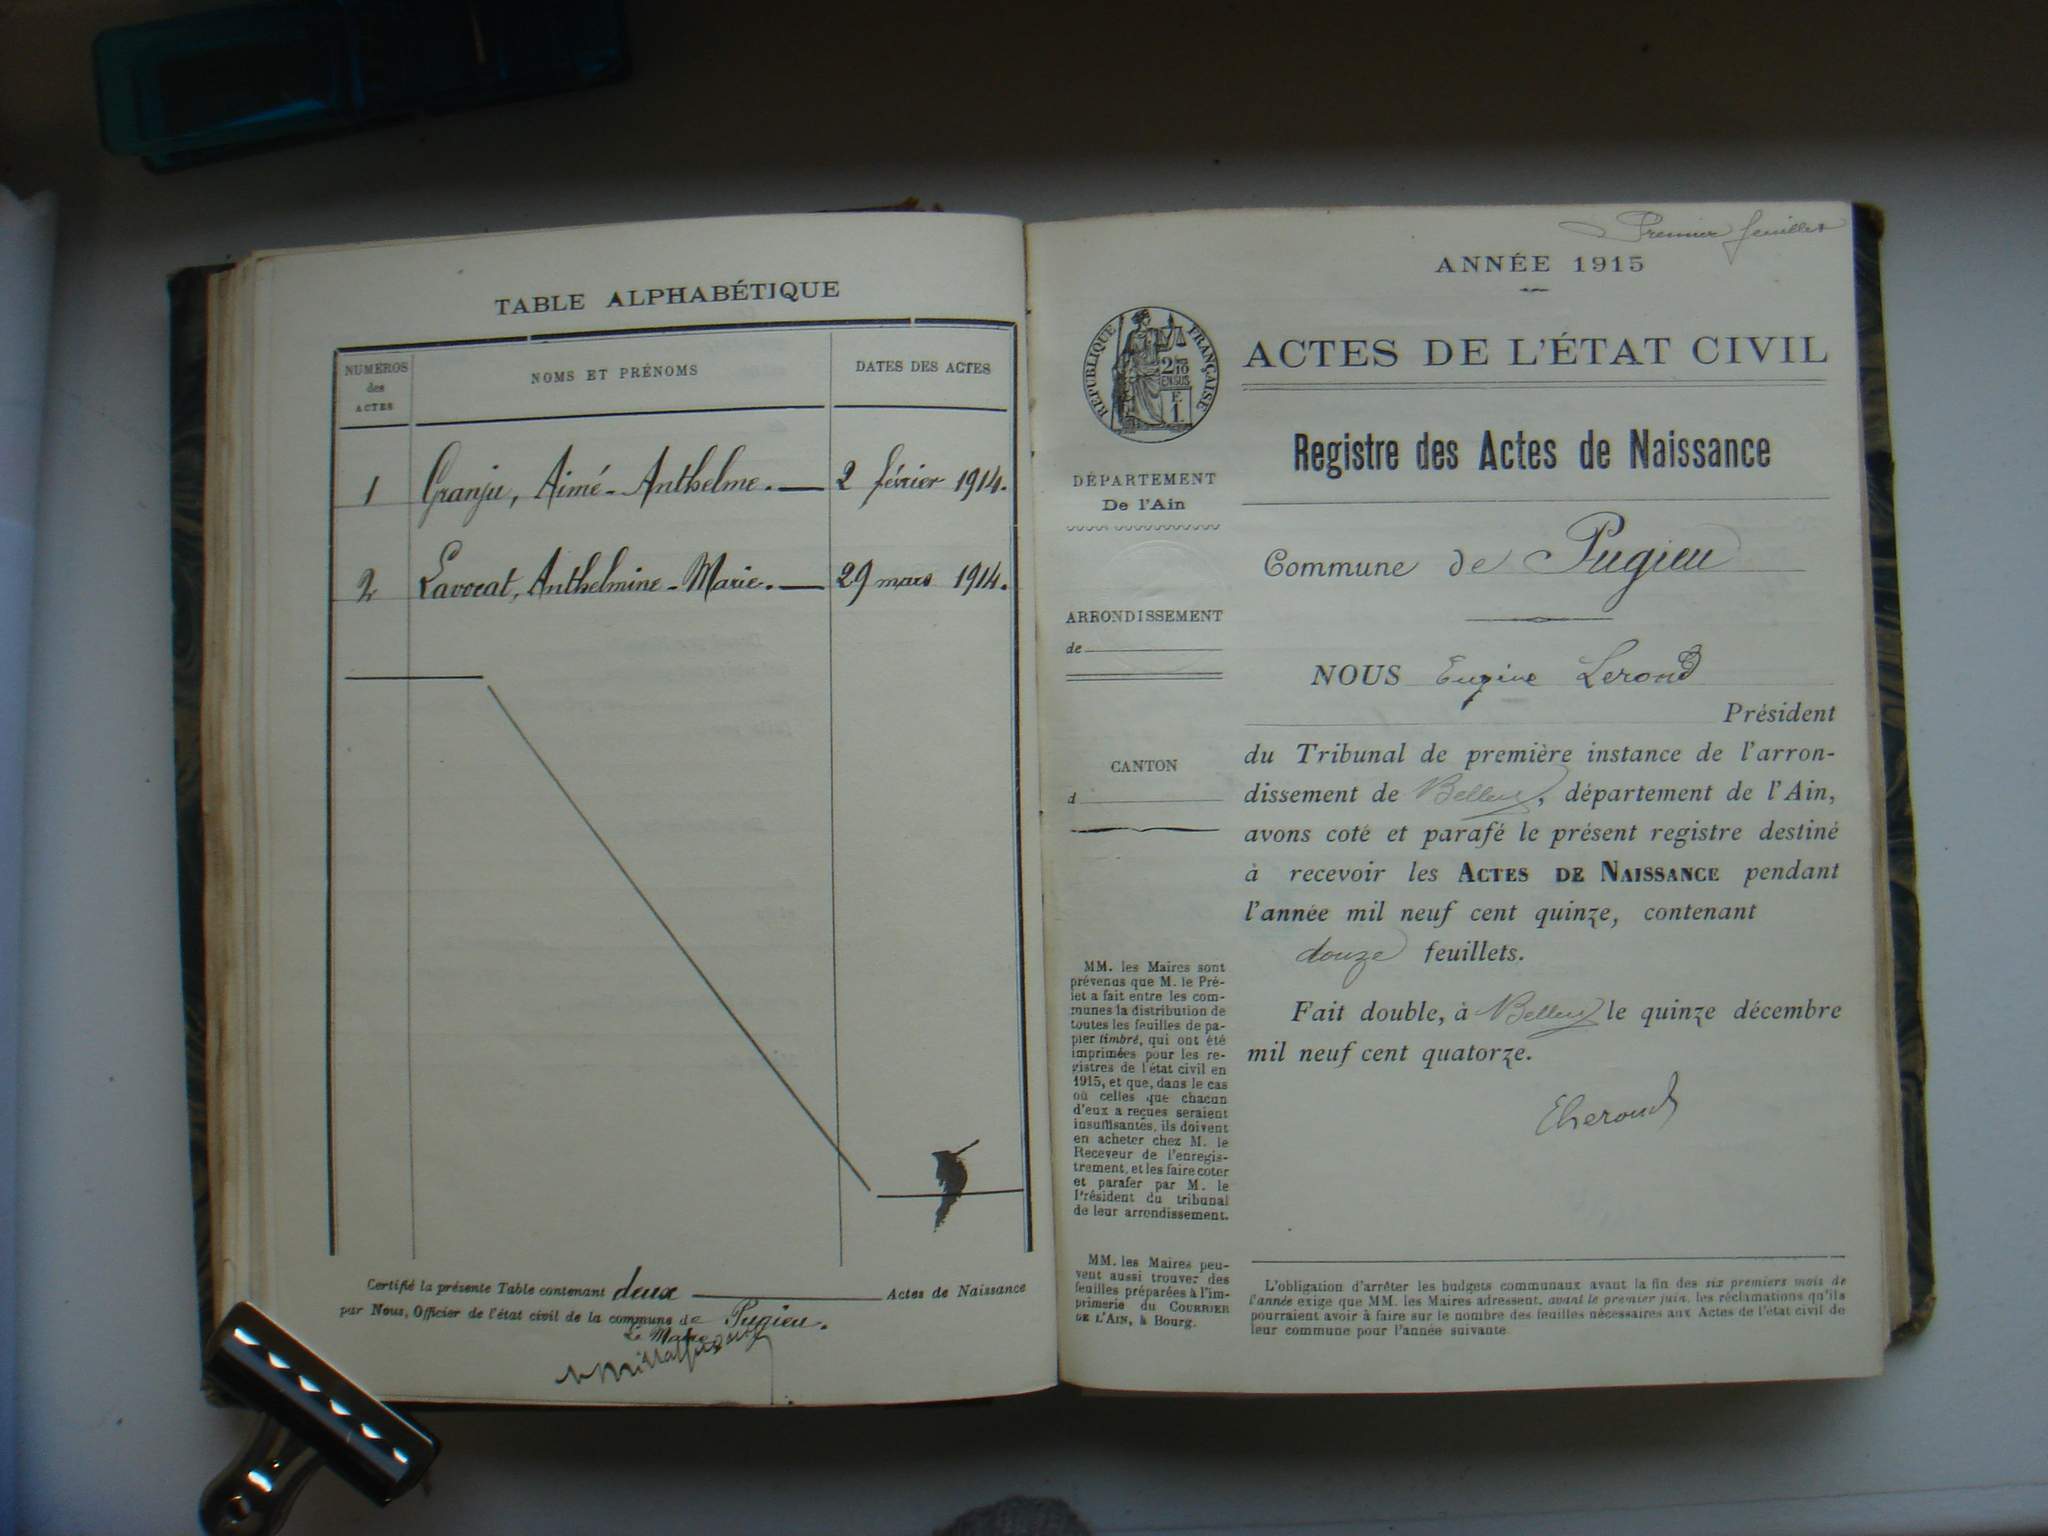 TABLE ALPHABÉTIQUE
NUMÉROS
des
ACTES
NOMS ET PRÉNOMS
DATES DES ACTES
1 Granju, Aimé-Anthelme. 2 février 1914.
2 Lavocat, Anthelmine-Marie. 29 mars 1914.
Certifié la présente Table contenant deux Actes de Naissance
par Nous, Officier de l'état civil de la commune de Pugieu.
Le Maire
Premier feuillet
ANNÉE 1915
RÉPUBLIQUE FRANÇAISE
2/10
EN SUS
F.
1.
ACTES DE L'ÉTAT CIVIL
Registre des Actes de Naissance
DÉPARTEMENT
De l'Ain
Commune de Pugieu
ARRONDISSEMENT
de
NOUS Eugène Lerond
Président
du Tribunal de première instance de l'arron-
dissement de Belley, département de l'Ain,
avons coté et parafé le présent registre destiné
à recevoir les ACTES DE NAISSANCE pendant
l'année mil neuf cent quinze, contenant
douze feuillets.
Fait double, à Belley le quinze décembre
mil neuf cent quatorze.
CANTON
d
MM. les Maires sont
prévenus que M. le Pré-
fet a fait entre les com-
munes la distribution de
toutes les feuilles de pa-
pier timbré, qui ont été
imprimées pour les re-
gistres de l'état civil en
1915, et que, dans le cas
où celles que chacun
d'eux a reçues seraient
insuffisantes, ils doivent
en acheter chez M. le
Receveur de l'enregis-
trement, et les faire coter
et parafer par M. le
Président du tribunal
de leur arrondissement.
MM. les Maires peu-
vent aussi trouver des
feuilles préparées à l'im-
primerie du COURRIER
DE L'AIN, à Bourg.
L'obligation d'arrêter les budgets communaux avant la fin des six premiers mois de
l'année exige que MM. les Maires adressent, avant le premier juin, les réclamations qu'ils
pourraient avoir à faire sur le nombre des feuilles nécessaires aux Actes de l'état civil de
leur commune pour l'année suivante